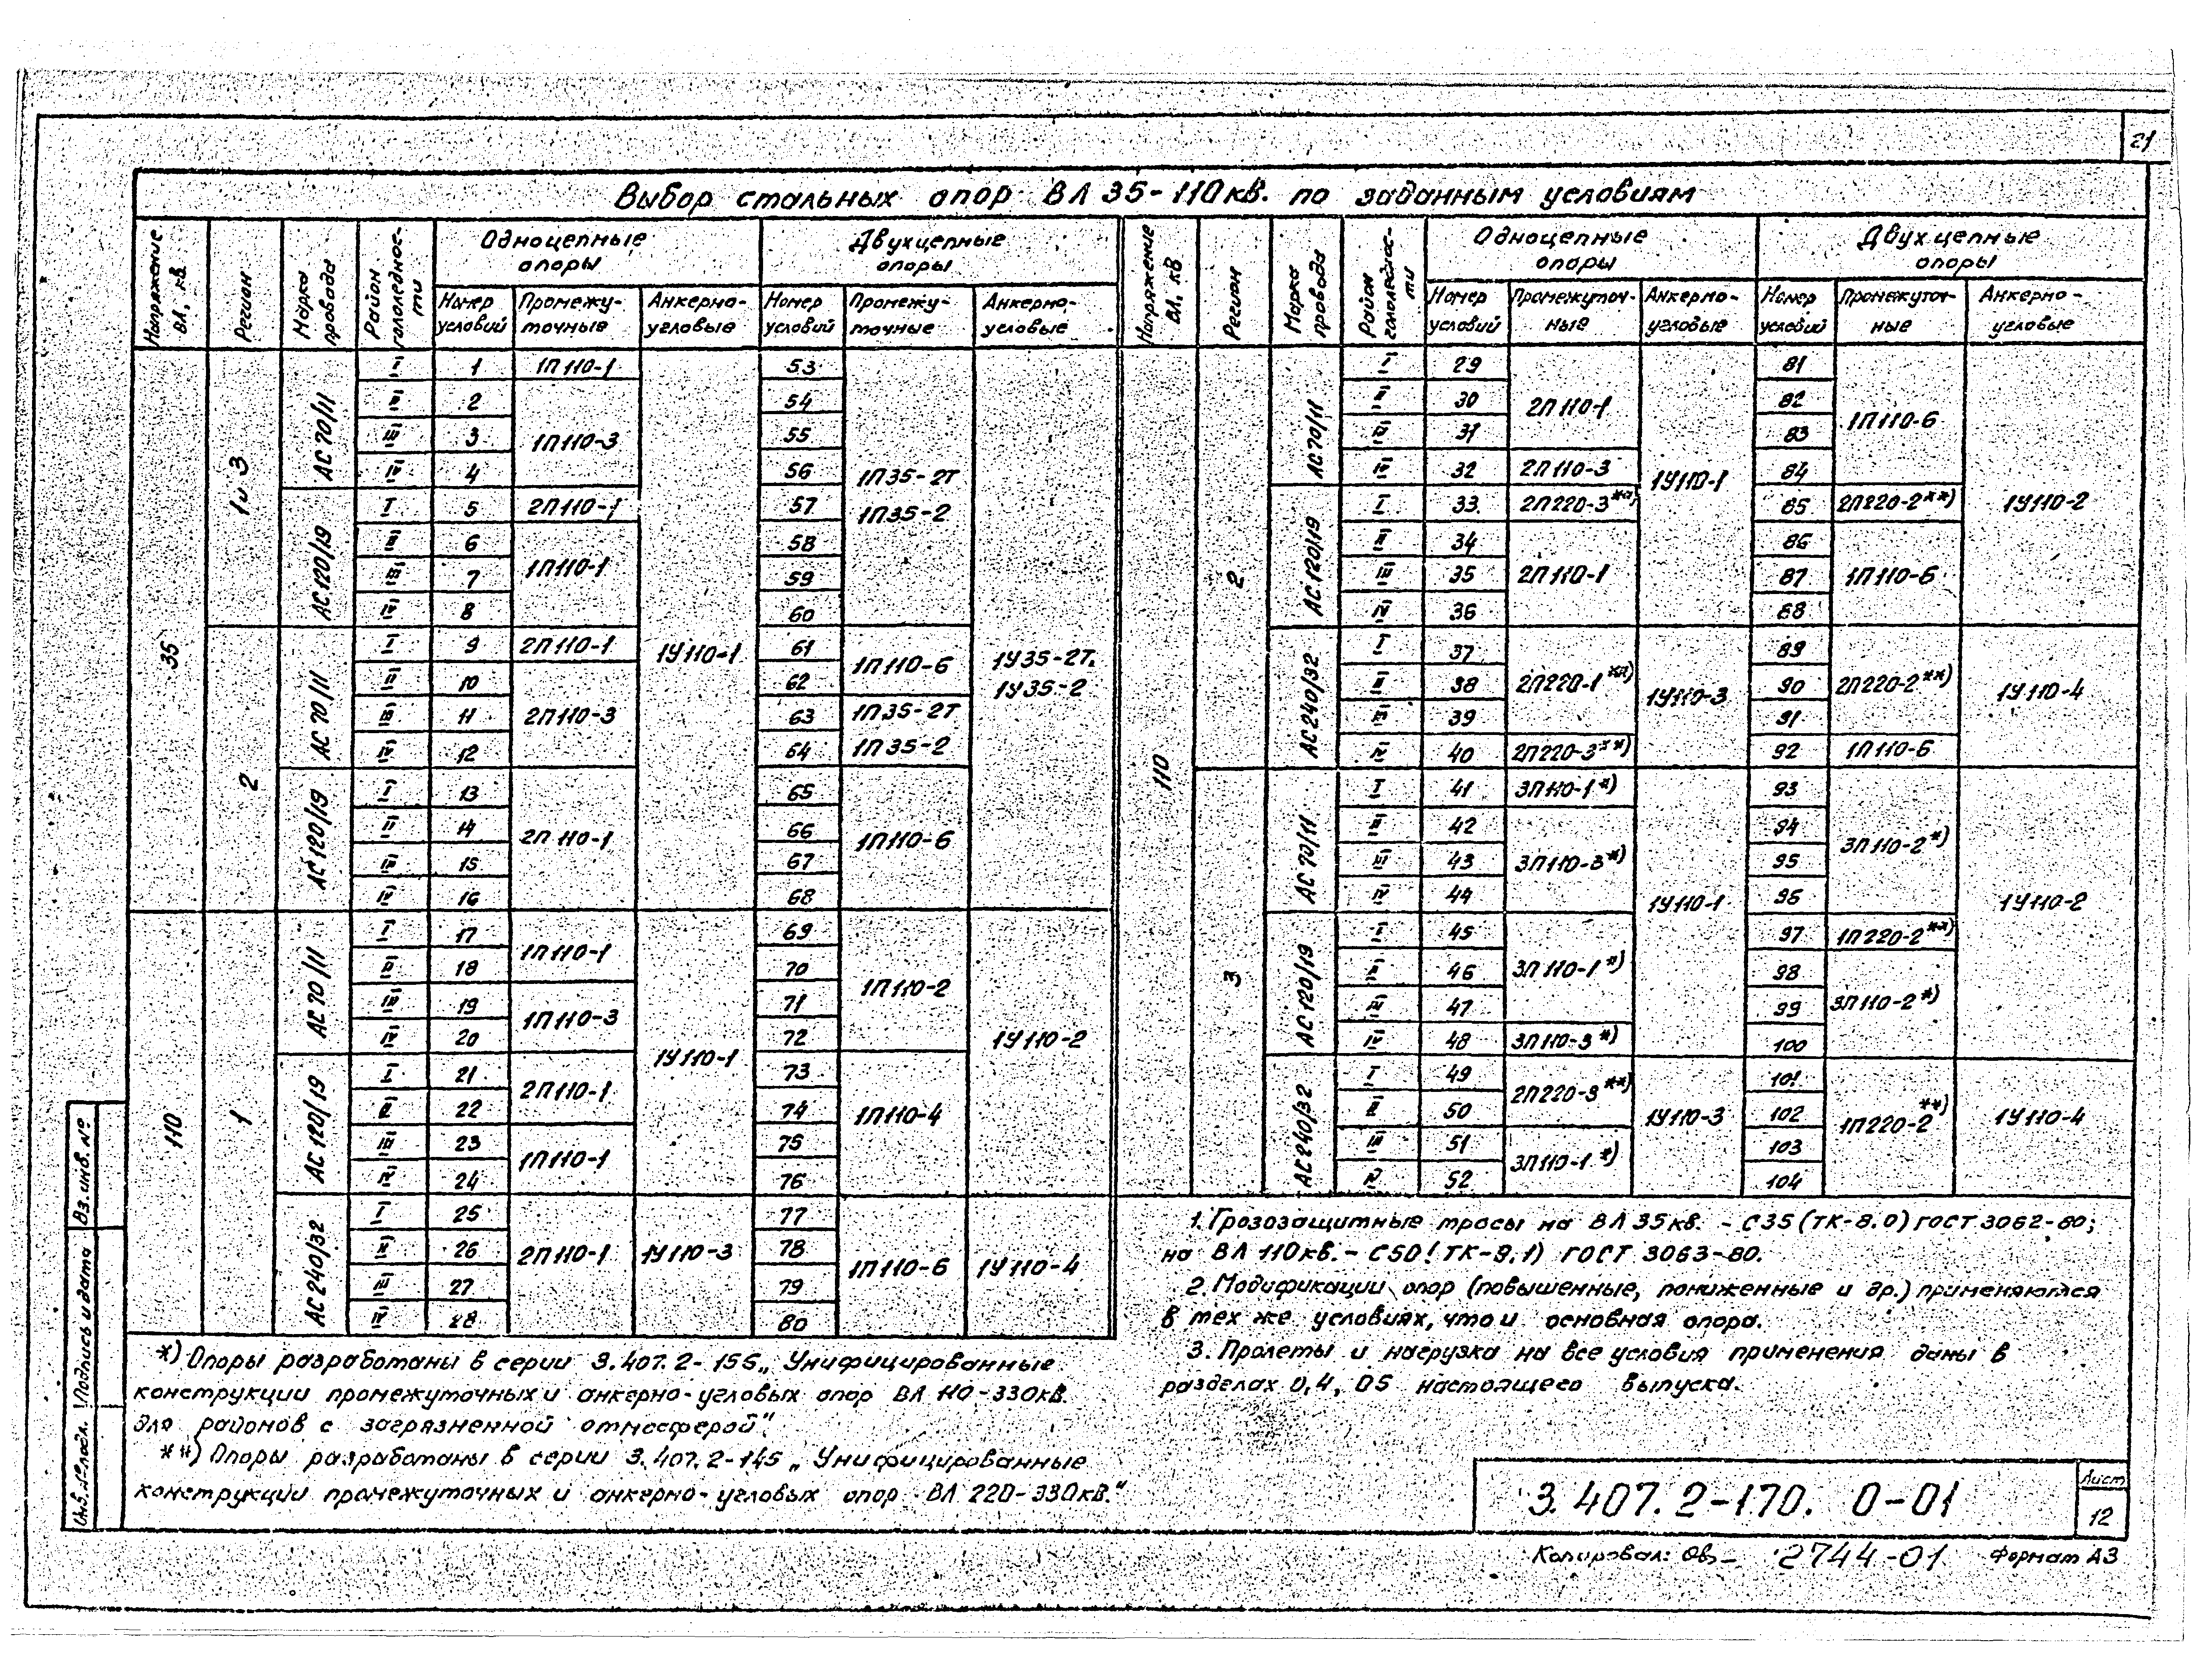 21
Выбор стальных опор ВЛ 35-110 кв. по заданным условиям
Напряжение ВЛ, кв.
Регион
Марка провода
Район гололедности
Одноцепные опоры
Двухцепные опоры
Номер условий
Промежуточные
Анкерно-угловые
Номер условий
Промежуточные
Анкерно-угловые
35
1 и 3
АС 70/11
I 1 1П110-1 53
II 2 54
III 3 1П110-3 55
IV 4 56 1П35-2Т
АС120/19
I 5 2П110-1 57 1П35-2
II 6 58
III 7 1П110-1 59
IV 8 60
2
АС 70/11
I 9 2П110-1 1У110-1 61 1П110-6 1У35-2Т.
II 10 62 1У35-2
III 11 2П110-3 63 1П35-2Т
IV 12 64 1П35-2
АС120/19
I 13 65
II 14 2П110-1 66 1П110-6
IV 15 67
IV 16 68
110
1
АС 70/11
I 17 1П110-1 69
II 18 70 1П110-2
III 19 1П110-3 71
IV 20 1У110-1 72 1У110-2
АС 120/19
I 21 2П110-1 73
II 22 74 1П110-4
III 23 1П110-1 75
IV 24 76
АС 240/32
I 25 77
II 26 2П110-1 1У110-3 78 1П110-6 1У110-4
III 27 79
IV 28 80
Напряжение ВЛ, кВ
Регион
Марка провода
Район гололедности
Одноцепные опоры
Двухцепные опоры
Номер условий
Промежуточные
Анкерно-угловые
Номер условий
Промежуточные
Анкерно-угловые
110
2
АС 70/11
I 29 81
II 30 2П110-1 82 1П110-6
IV 31 83
IV 32 2П110-3 1У110-1 84
АС 120/19
I 33 2П220-3**) 85 2П220-2**) 1У110-2
II 34 86
III 35 2П110-1 87 1П110-6
IV 36 88
АС 240/32
I 37 89
II 38 2П220-1**) 1У110-3 90 2П220-2**) 1У110-4
III 39 91
IV 40 2П220-3**) 92 1П110-6
3
АС 70/11
I 41 3П110-1*) 93
II 42 94 3П110-2*)
III 43 3П110-3*) 95
IV 44 1У110-1 96 1У110-2
АС 120/19
I 45 97 1П220-2**)
II 46 3П110-1*) 98
III 47 99 3П110-2*)
IV 48 3П110-3*) 100
АС 240/32
I 49 2П220-3**) 101
II 50 1У110-3 102 1П220-2**) 1У110-4
III 51 3П110-1*) 103
IV 52 104
1. Грозозащитные тросы на ВЛ 35кв. - С35 (ТК-8.0) ГОСТ 3062-80;
на ВЛ 110 кв. - С50 (ТК-9,1) ГОСТ 3063-80.
2. Модификации опор (повышенные, пониженные и др.) применяются
в тех же условиях, что и основная опора.
3. Пролеты и нагрузка на все условия применения даны в
разделах 0,4, 05 настоящего выпуска.
*) Опоры разработаны в серии 3.407.2-156 „Унифицированные
конструкции промежуточных и анкерно-угловых опор ВЛ 110-330кВ.
для районов с загрязненной атмосферой".
**) Опоры разработаны в серии 3.407.2-145 „Унифицированные
конструкции промежуточных и анкерно-угловых опор ВЛ 220-330кВ."
Вз. инв. №
Подпись и дата
Инв. № подл.
3.407.2-170. 0-01
Лист
12
Копировал: Ов- 2744-01 Формат А3